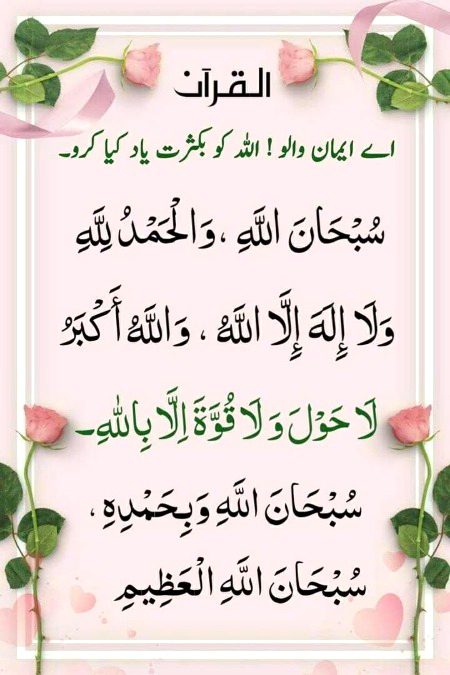 القرآن
اے ایمان والو ! اللہ کو بکثرت یاد کیا کرو۔
سُبْحَانَ اللَّهِ ، وَالْحَمْدُ لِلَّهِ
وَلَا إِلَهَ إِلَّا اللَّهُ ، وَاللَّهُ أَكْبَرُ
لَا حَوْلَ وَلَا قُوَّةَ اِلَّا بِاللهِ۔
سُبْحَانَ اللَّهِ وَبِحَمْدِهِ ،
سُبْحَانَ اللَّهِ الْعَظِيمِ